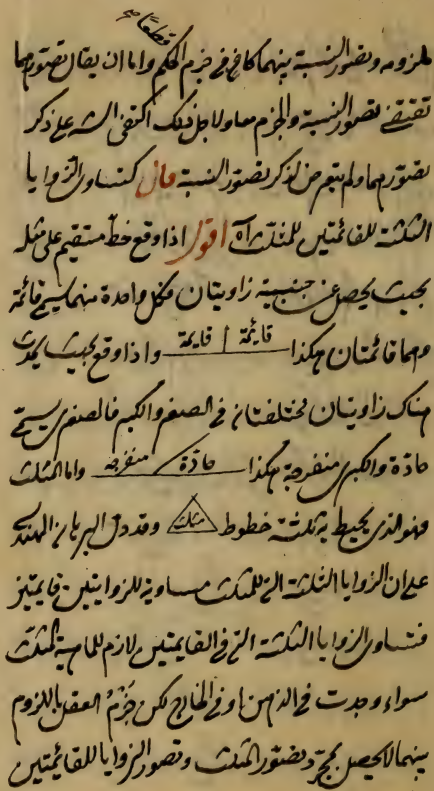 قطعا صح
ملزومه وتصور النسبة بينهما كاف في جزم الحكم واما ان يقال تصورهما
تقتضي تصور النسبة والجزم معا ولاجل ذلك اكتفى الشه على ذكر
تصورهما ولم يتعرض لذكر تصور النسبة قال كتساوى الزوايا
الثلثة للقائمتين للمثلث اه اقول اذا وقع خط مستقيم على مثله
بحيث يحصل عن جنبيه زاويتان فكل واحدة منهما يسمى قائمة
وهما قائمتان هكذا قائمة قايمة واذا وقع بحيث يحدث
هناك زاويتان مختلفتان في الصغر والكبر فالصغرى يسمى
حادة والكبرى منفرجة هكذا حادة منفرجه واما المثلث
فهو الذى يحيط به ثلثة خطوط مثلث وقد دل البرهان الهندسى
على ان الزوايا الثلثة التى للمثلث مساوية للزوايتين قايمتين
فتساوى الزوايا الثلثة التى في القايمتين لازم للماهية المثلث
سواء وجدت في الذهن او في الخارج لكن جزم العقل باللزوم
بينهما لا يحصل بمجرد تصور المثلث وتصور الزوايا للقائمتين